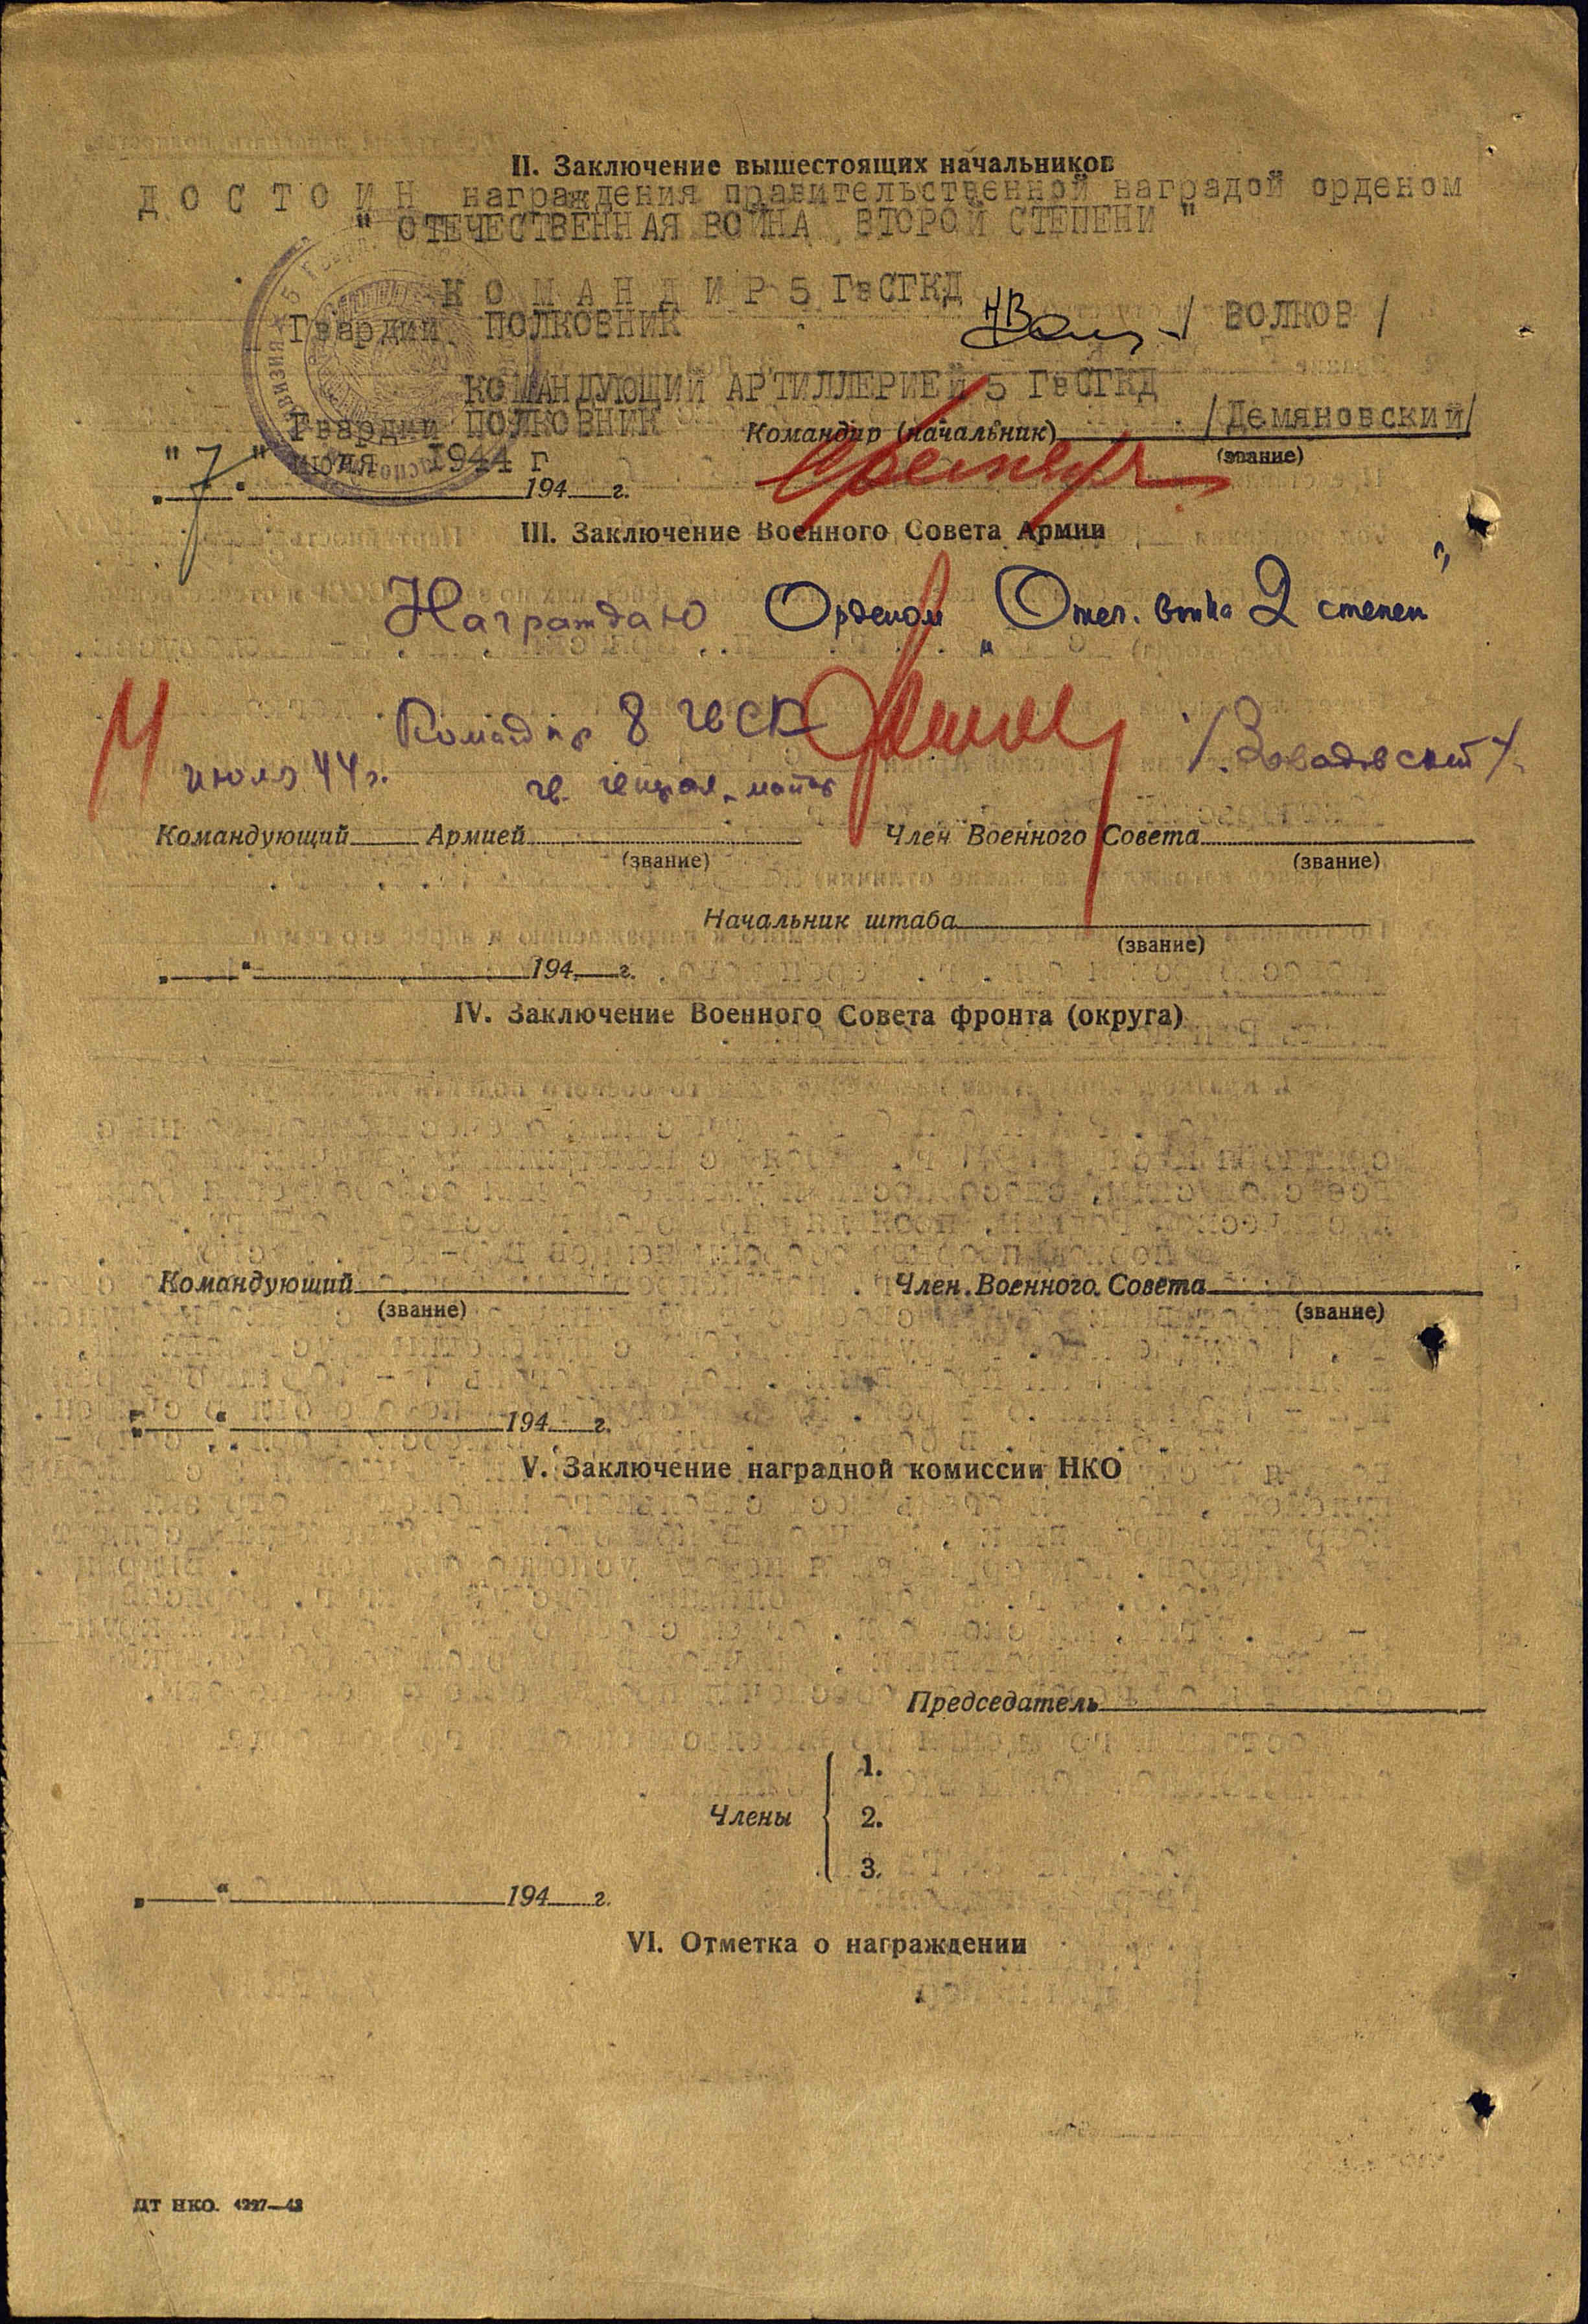 II. Заключение вышестоящих начальников
Д О С Т О И Н награждения правительственной наградой орденом
" ОТЕЧЕСТВЕННАЯ ВОЙНА ВТОРОЙ СТЕПЕНИ "
К О М А Н Д И Р 5 ГвСГКД
Гвардии ПОЛКОВНИК / ВОЛКОВ /
КОМАНДУЮЩИЙ АРТИЛЛЕРИЕЙ 5 ГвСГКД
Гвардии ПОЛКОВНИК Командир (начальник) /Демяновский/
(звание)
"7" июля 1944 г
„ “ 194 г.
III. Заключение Военного Совета Армии
Награждаю Орденом „Отеч. война 2 степен"
Командир 8 гвСК
/Завадовский/
июля 44г.
гв. генерал-майор
Командующий Армией Член Военного Совета
(звание) (звание)
Начальник штаба
(звание)
„ “ 194 г.
IV. Заключение Военного Совета фронта (округа)
Командующий Член Военного Совета
(звание) (звание)
„ “ 194 г.
V. Заключение наградной комиссии НКО
Председатель
1.
Члены 2.
3.
„ “ 194 г.
VI. Отметка о награждении
ДТ НКО. 4227—43